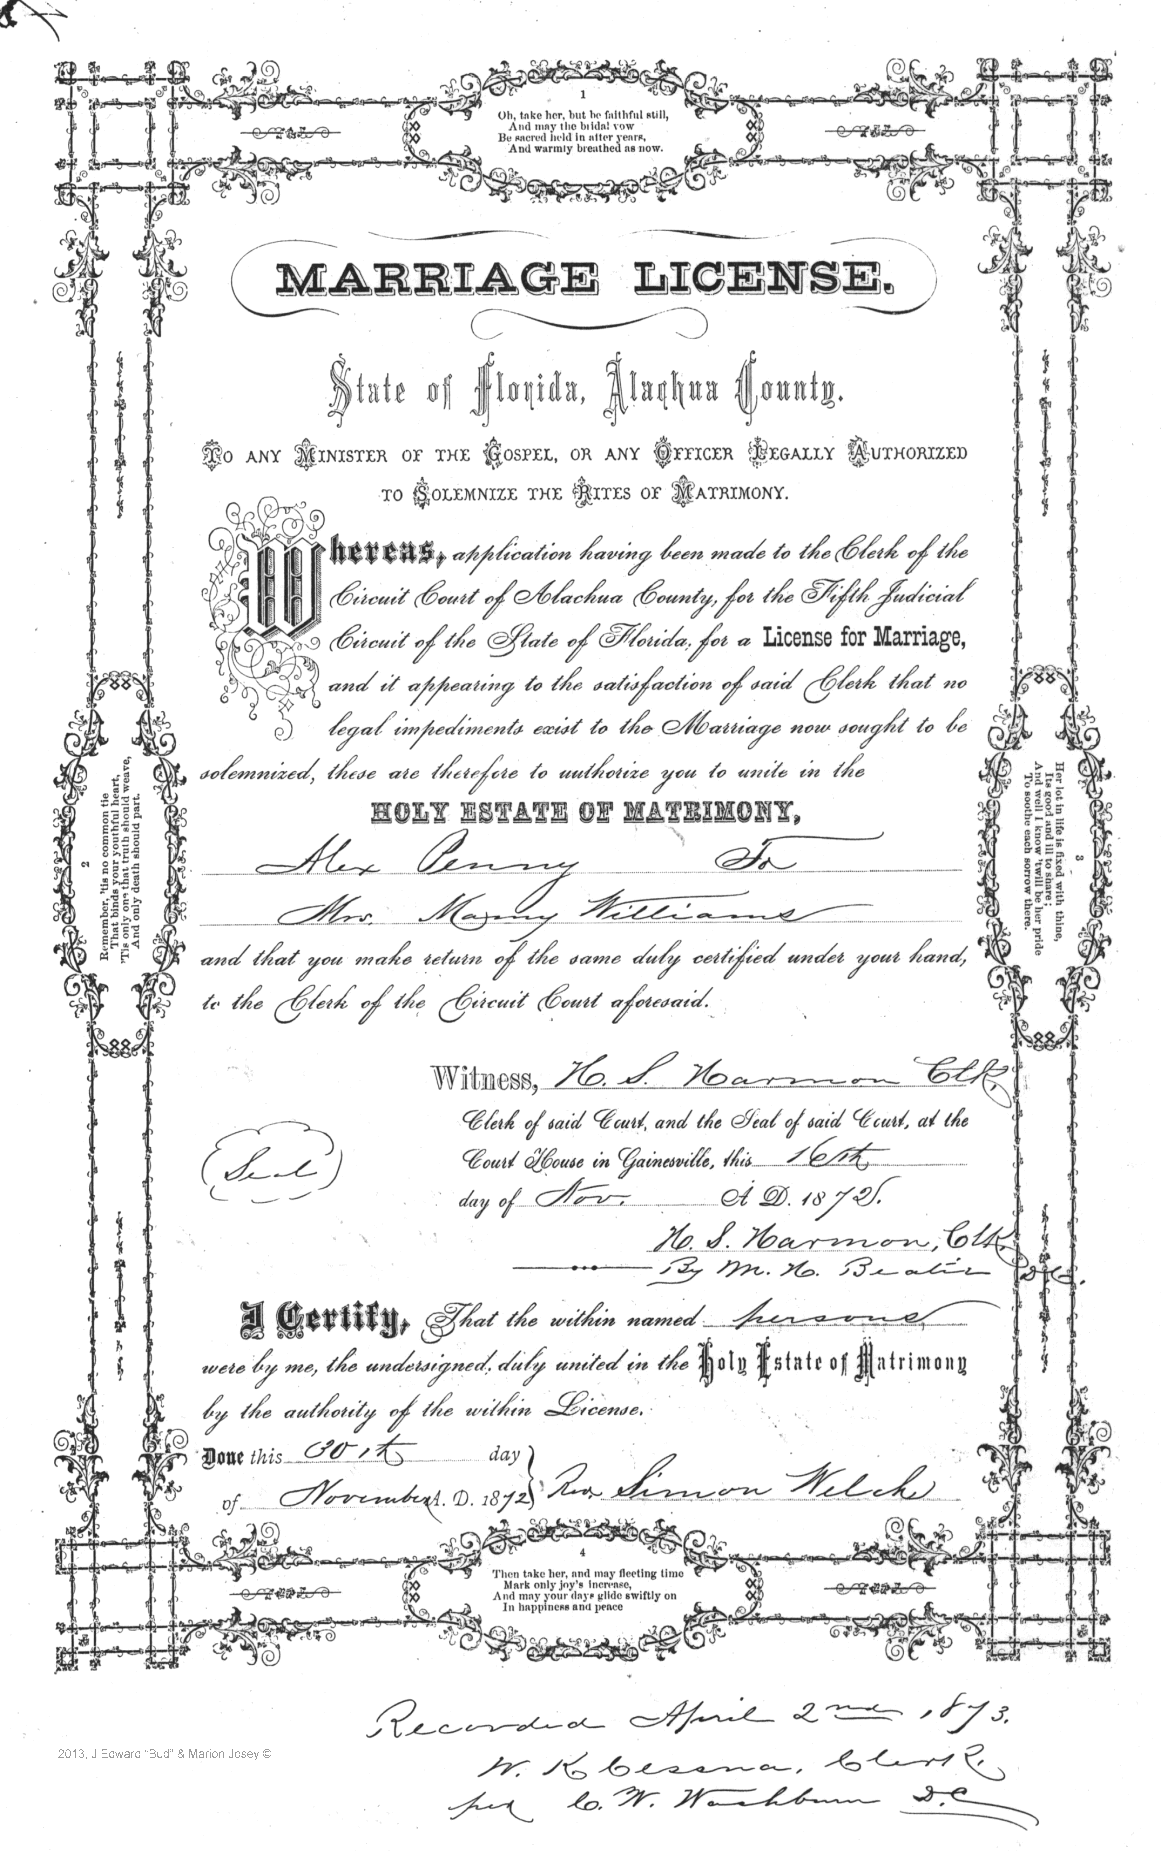 1
Oh, take her, but be faithful still,
And may the bridal vow
Be sacred held in after years,
And warmly breathed as now.
MARRIAGE LICENSE.
State of Florida, Alachua County.
TO ANY MINISTER OF THE GOSPEL, OR ANY OFFICER LEGALLY AUTHORIZED
TO SOLEMNIZE THE RITES OF MATRIMONY.
Whereas, application having been made to the Clerk of the
Circuit Court of Alachua County, for the Fifth Judicial
Circuit of the State of Florida, for a License for Marriage,
and it appearing to the satisfaction of said Clerk that no
legal impediments exist to the Marriage now sought to be
solemnized, these are therefore to authorize you to unite in the
HOLY ESTATE OF MATRIMONY,
Alex Penny To
Mrs. Williams
and that you make return of the same duly certified under your hand,
to the Clerk of the Circuit Court aforesaid.
2
Remember, 'tis no common tie
That binds your youthful heart,
'Tis only one that truth should weave,
And only death should part.
3
Her lot in life is fixed with thine,
Its good and ill to share;
And well I know 'twill be her pride
To soothe each sorrow there.
Witness, H. S. Harmon Clk.
Clerk of said Court, and the Seal of said Court, at the
Court House in Gainesville, this 16th
day of Nov. A D. 1872.
Seal
H. S. Harmon, Clk.
By M. H. D.C.
I Certify, That the within named persons
were by me, the undersigned, duly united in the Holy Estate of Matrimony
by the authority of the within License.
Done this 30th day
of November A. D. 1872 Rev. Simon Welch
4
Then take her, and may fleeting time
Mark only joy's increase,
And may your days glide swiftly on
In happiness and peace
Recorded April 2nd 1873.
W. K Cessna, Clerk.
per C. W. Washburn D.C
2013, J Edward "Bud" & Marion Josey ©